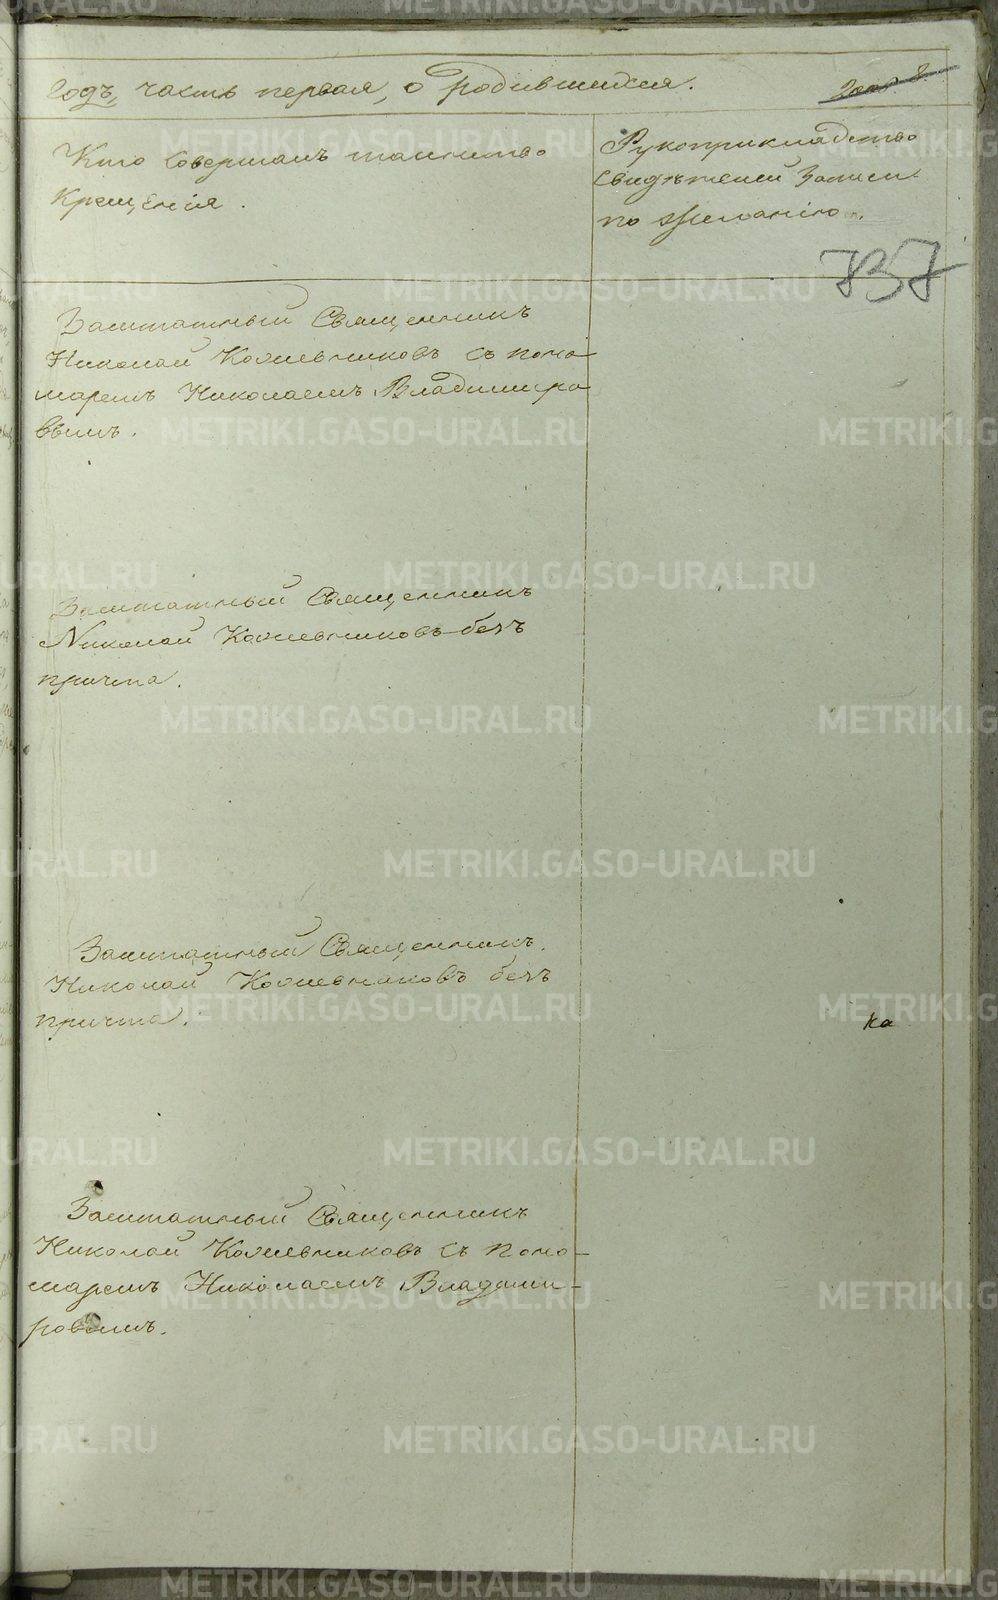 годъ, часть первая, о родившихся.
Кто совершалъ таинство
Крещенія.
Рукоприкладство
свидѣтелей записи
по желанію.
737
Заштатный Священникъ
Николай Кожевниковъ съ поно-
маремъ Николаемъ Владиміро
вымъ.
Заштатный Священникъ
Николай Кожевниковъ безъ
причта.
Заштатный Священникъ.
Николай Кожевниковъ безъ
причта.
ка
Заштатный Священникъ
Николай Кожевниковъ съ поно-
маремъ Николаемъ Владими-
ровымъ.
METRIKI.GASO-URAL.RU